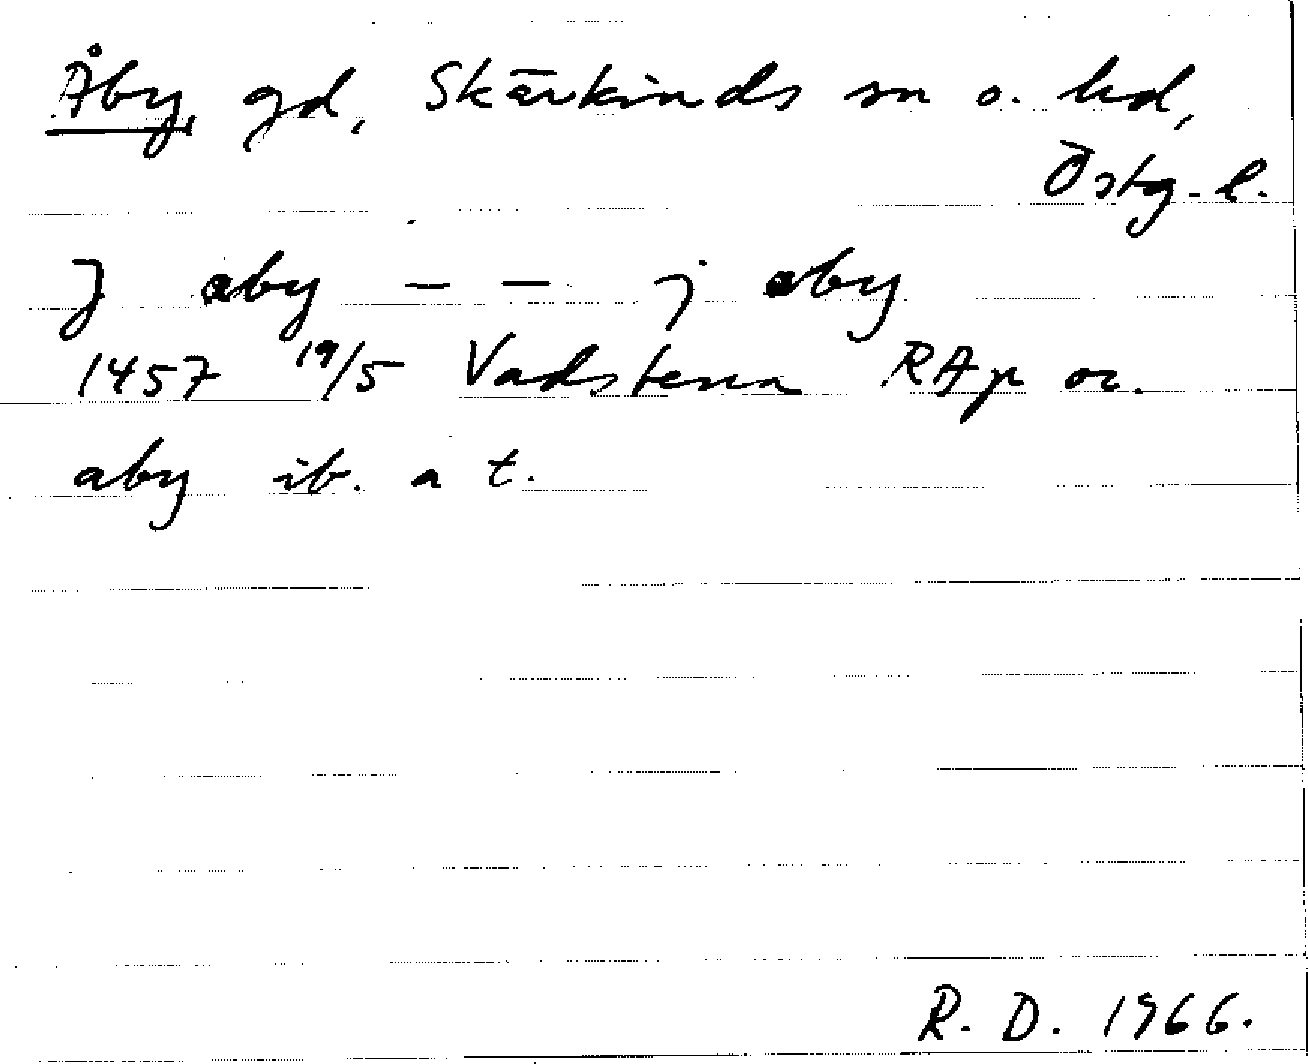 Åby, gd, Skärkinds sn o. hd,
Östg. l.
J aby – – j aby
1457 19/5 Vadstena RAp or.
aby ib. a t.
R. D. 1966.